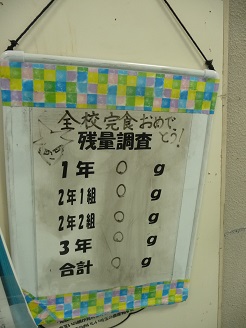 全校完食おめでとう!
残量調査
1年 0 g
2年1組 0 g
2年2組 0 g
3年 0 g
合計 0 g